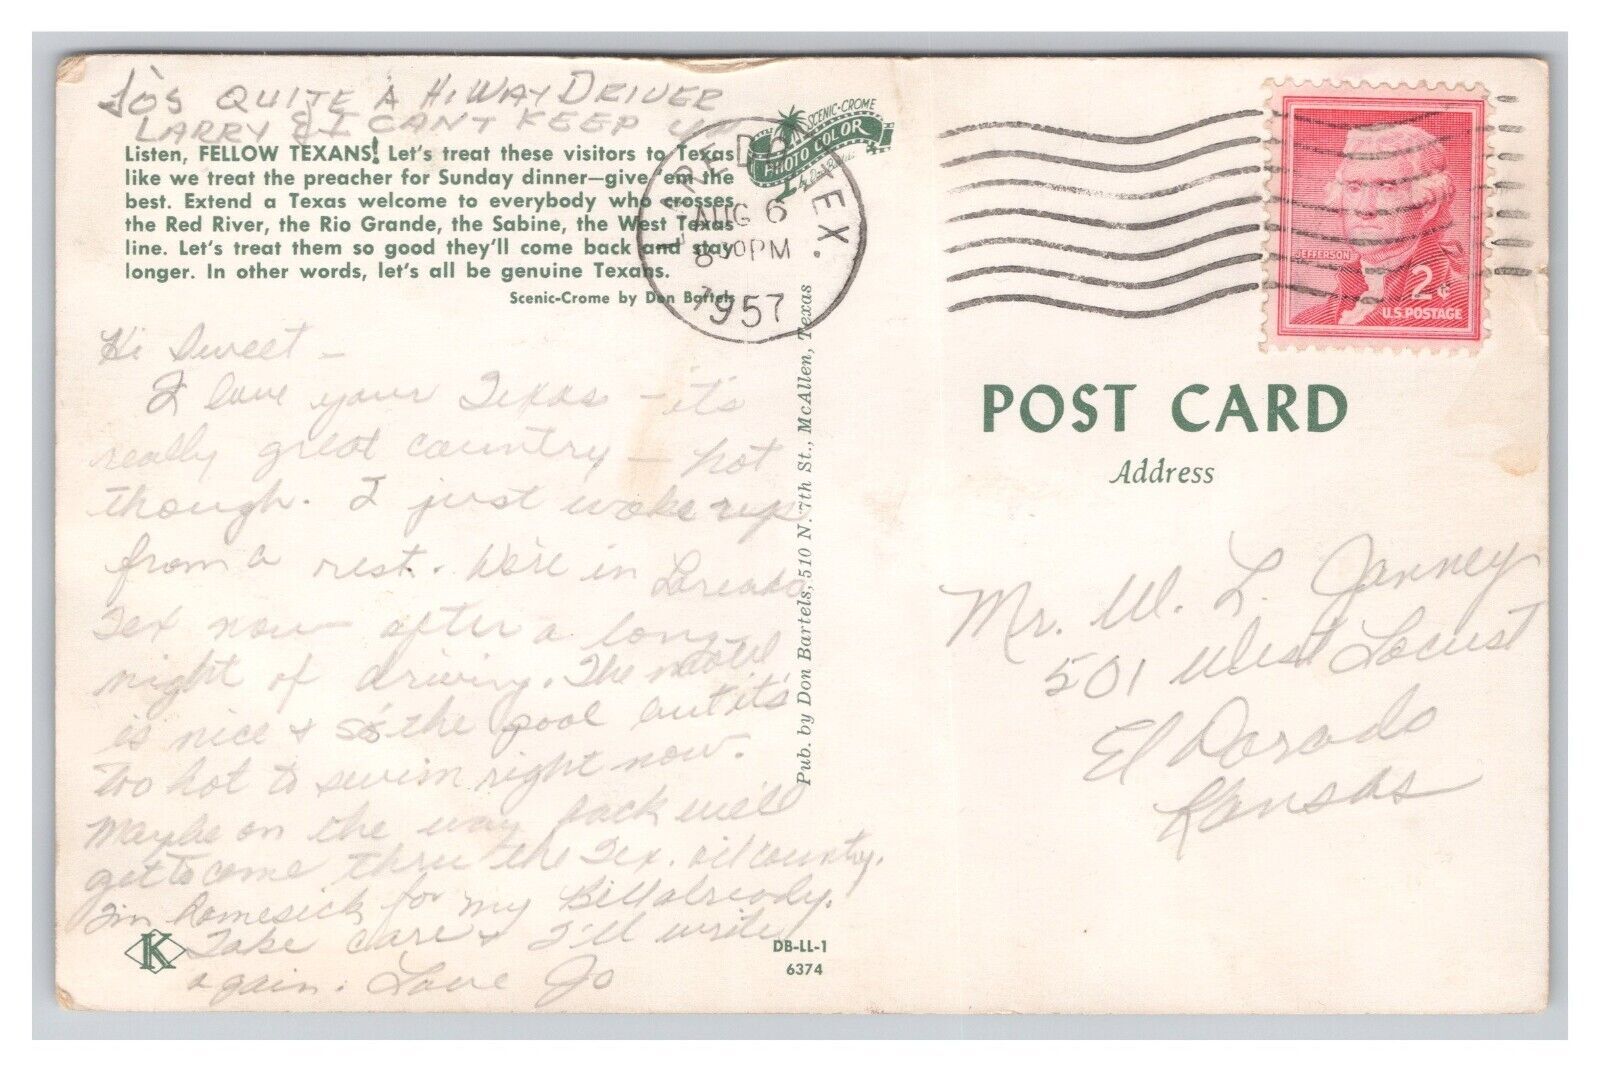 JO'S QUITE A HIWAY DRIVER
LARRY & I CANT KEEP UP
Listen, FELLOW TEXANS! Let's treat these visitors to Texas
like we treat the preacher for Sunday dinner—give 'em the
best. Extend a Texas welcome to everybody who crosses
the Red River, the Rio Grande, the Sabine, the West Texas
line. Let's treat them so good they'll come back and stay
longer. In other words, let's all be genuine Texans.
Scenic-Crome by Don Bartels
Hi Sweet -
I love your Texas - it's
really great country - hot
though. I just woke up
from a rest. We're in Loredo
Tex now after a long
night of driving. The motel
is nice & so's the pool but it's
too hot to swim right now.
Maybe on the way back we'll
get to come thru the Tex. oil country.
I'm homesick for my Bill already.
Take care & I'll write
again. Love Jo
K
DB-LL-1
6374
SCENIC-CROME
PHOTO COLOR
by Don Bartels
LAREDO, TEX.
AUG 6
8 00 PM
1957
Pub. by Don Bartels, 510 N. 7th St., McAllen, Texas
JEFFERSON
2¢
U.S. POSTAGE
POST CARD
Address
Mr. W. L. Janney
501 West Locust
El Dorado
Kansas